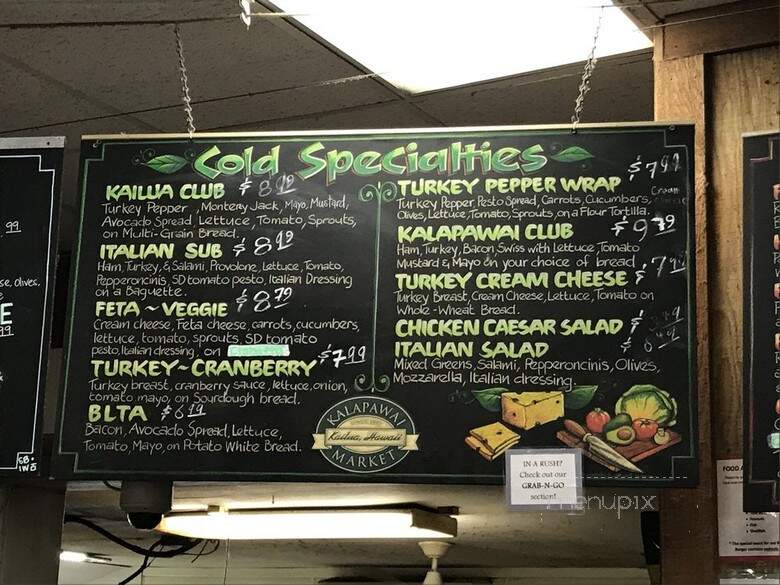 Cold Specialties
KAILUA CLUB
Turkey Pepper, Monterey Jack, Mayo, Mustard,
Avocado Spread, Lettuce, Tomato, Sprouts,
on Multi-Grain Bread.
ITALIAN SUB
Ham, Turkey, & Salami, Provolone, Lettuce, Tomato,
Pepperoncinis, SD tomato pesto, Italian Dressing
on a Baguette.
FETA ~ VEGGIE $8.79
Cream cheese, Feta cheese, carrots, cucumbers,
lettuce, tomato, sprouts, SD tomato
pesto, Italian dressing, on
TURKEY~CRANBERRY $7.99
Turkey breast, cranberry sauce, lettuce, onion,
tomato, mayo, on Sourdough bread.
BLTA
Bacon, Avocado Spread, Lettuce,
Tomato, Mayo, on Potato White Bread.
TURKEY PEPPER WRAP $7.99
Turkey Pepper, Pesto Spread, Carrots, Cucumbers, Cream
Olives, Lettuce, Tomato, Sprouts, on a Flour Tortilla.
KALAPAWAI CLUB
Ham, Turkey, Bacon, Swiss with Lettuce, Tomato
Mustard & Mayo on your choice of bread
TURKEY CREAM CHEESE
Turkey Breast, Cream Cheese, Lettuce, Tomato on
Whole-Wheat Bread.
CHICKEN CAESAR SALAD
ITALIAN SALAD
Mixed Greens, Salami, Pepperoncinis, Olives,
Mozzarella, Italian dressing.
KALAPAWAI
Kailua, Hawaii
MARKET
IN A RUSH?
Check out our
GRAB-N-GO
section!
menupix
.99
se, Olives,
E
99
FOOD